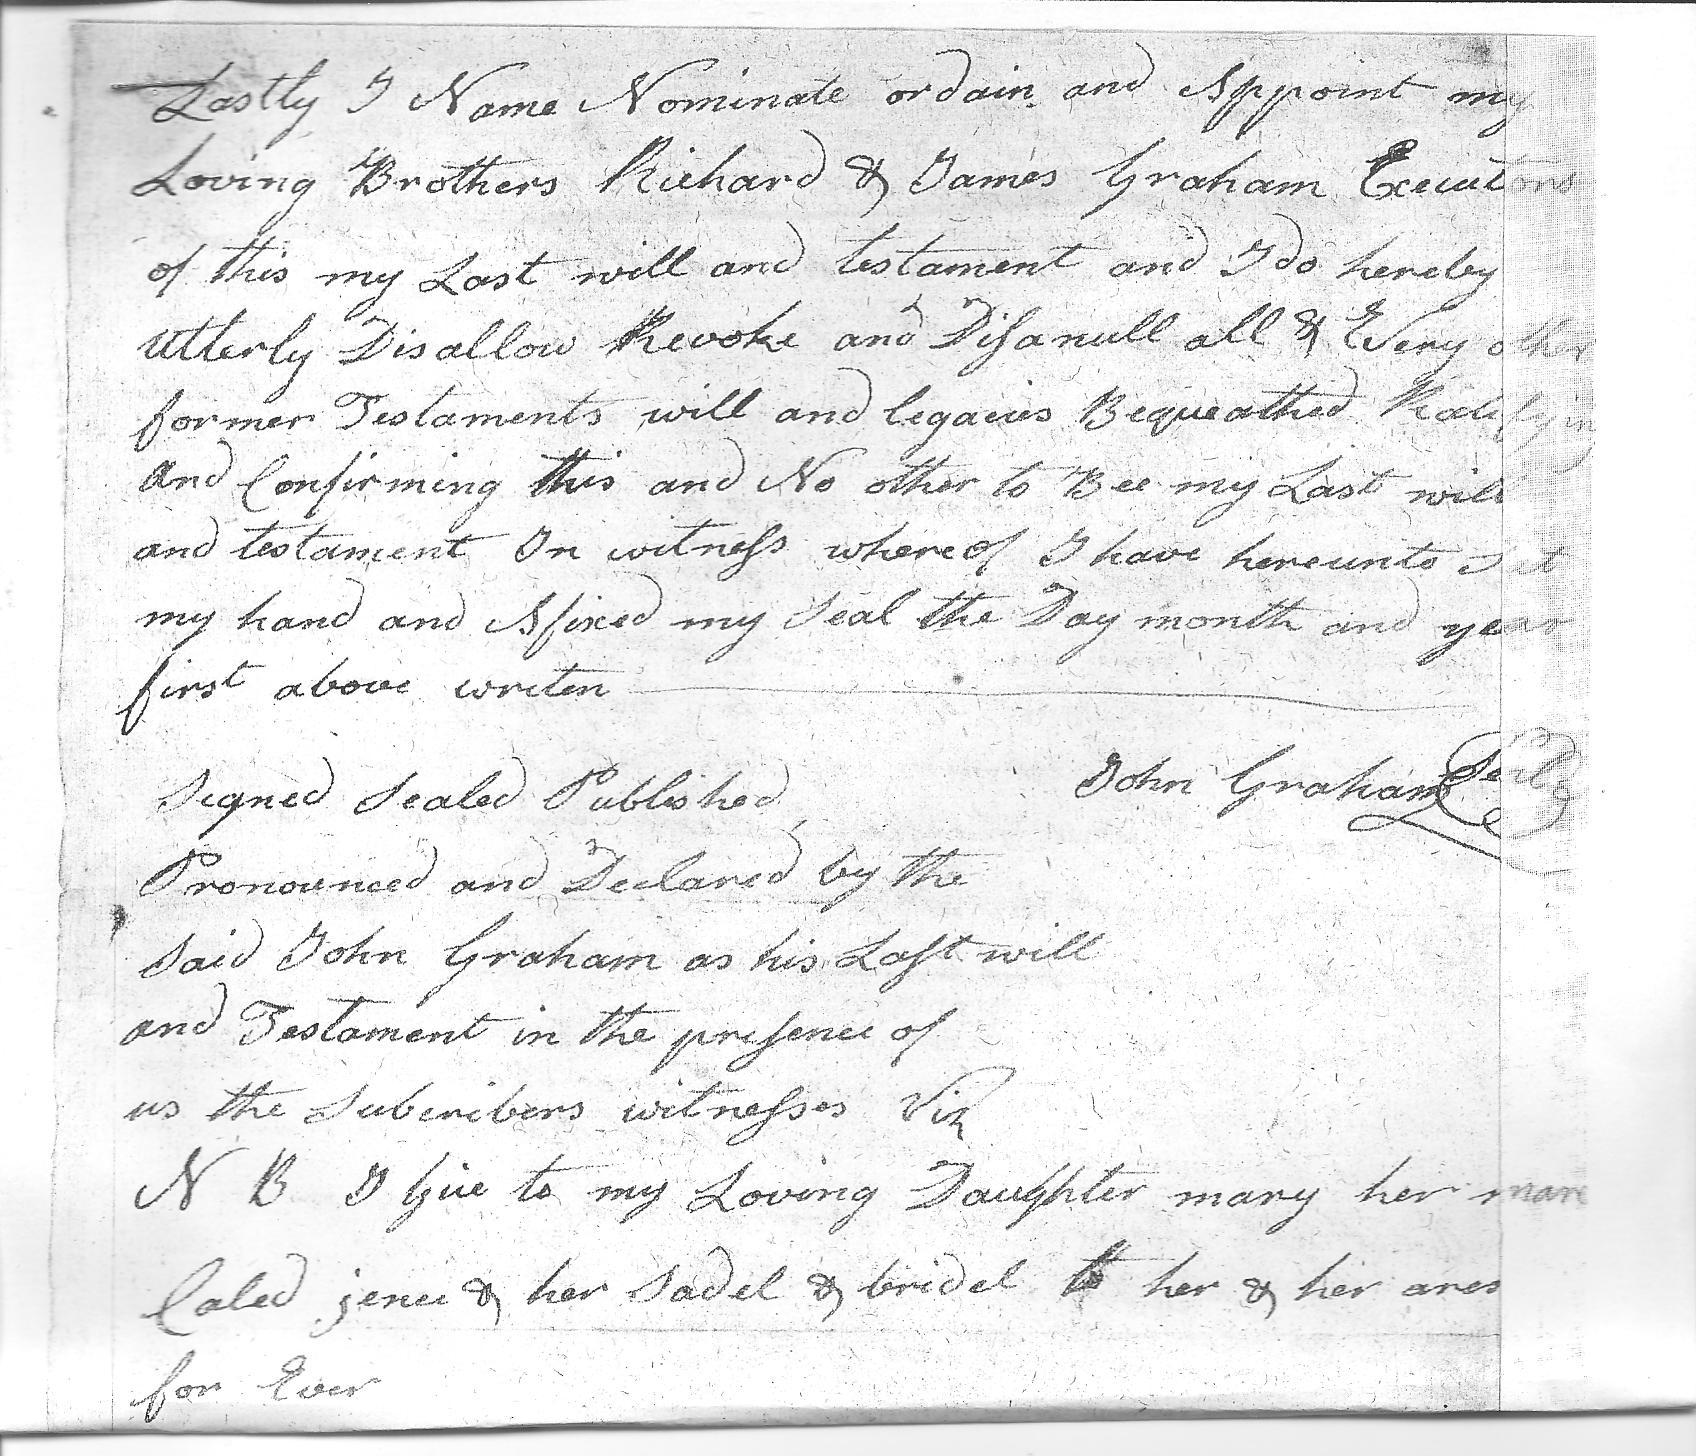 Lastly I Name Nominate ordain and Appoint my
Loving Brothers Richard & James Graham Executors
of this my Last will and testament and I do hereby
utterly Disallow Revoke and Disanull all & Every other
former Testaments will and legacies Bequeathed Ratifying
And Confirming this and No other to Bee my Last will
and testament In witness whereof I have hereunto Set
my hand and Afixed my Seal the Day month and year
first above writen
Signed Sealed Published John Graham Seal
Pronounced and Declared by the
Said John Graham as his Last will
and Testament in the presence of
us the Subcribers witnesses Viz
N B I Give to my Loving Daughter mary her mare
Caled jenee & her Sadel & bridel to her & her ares
for Ever